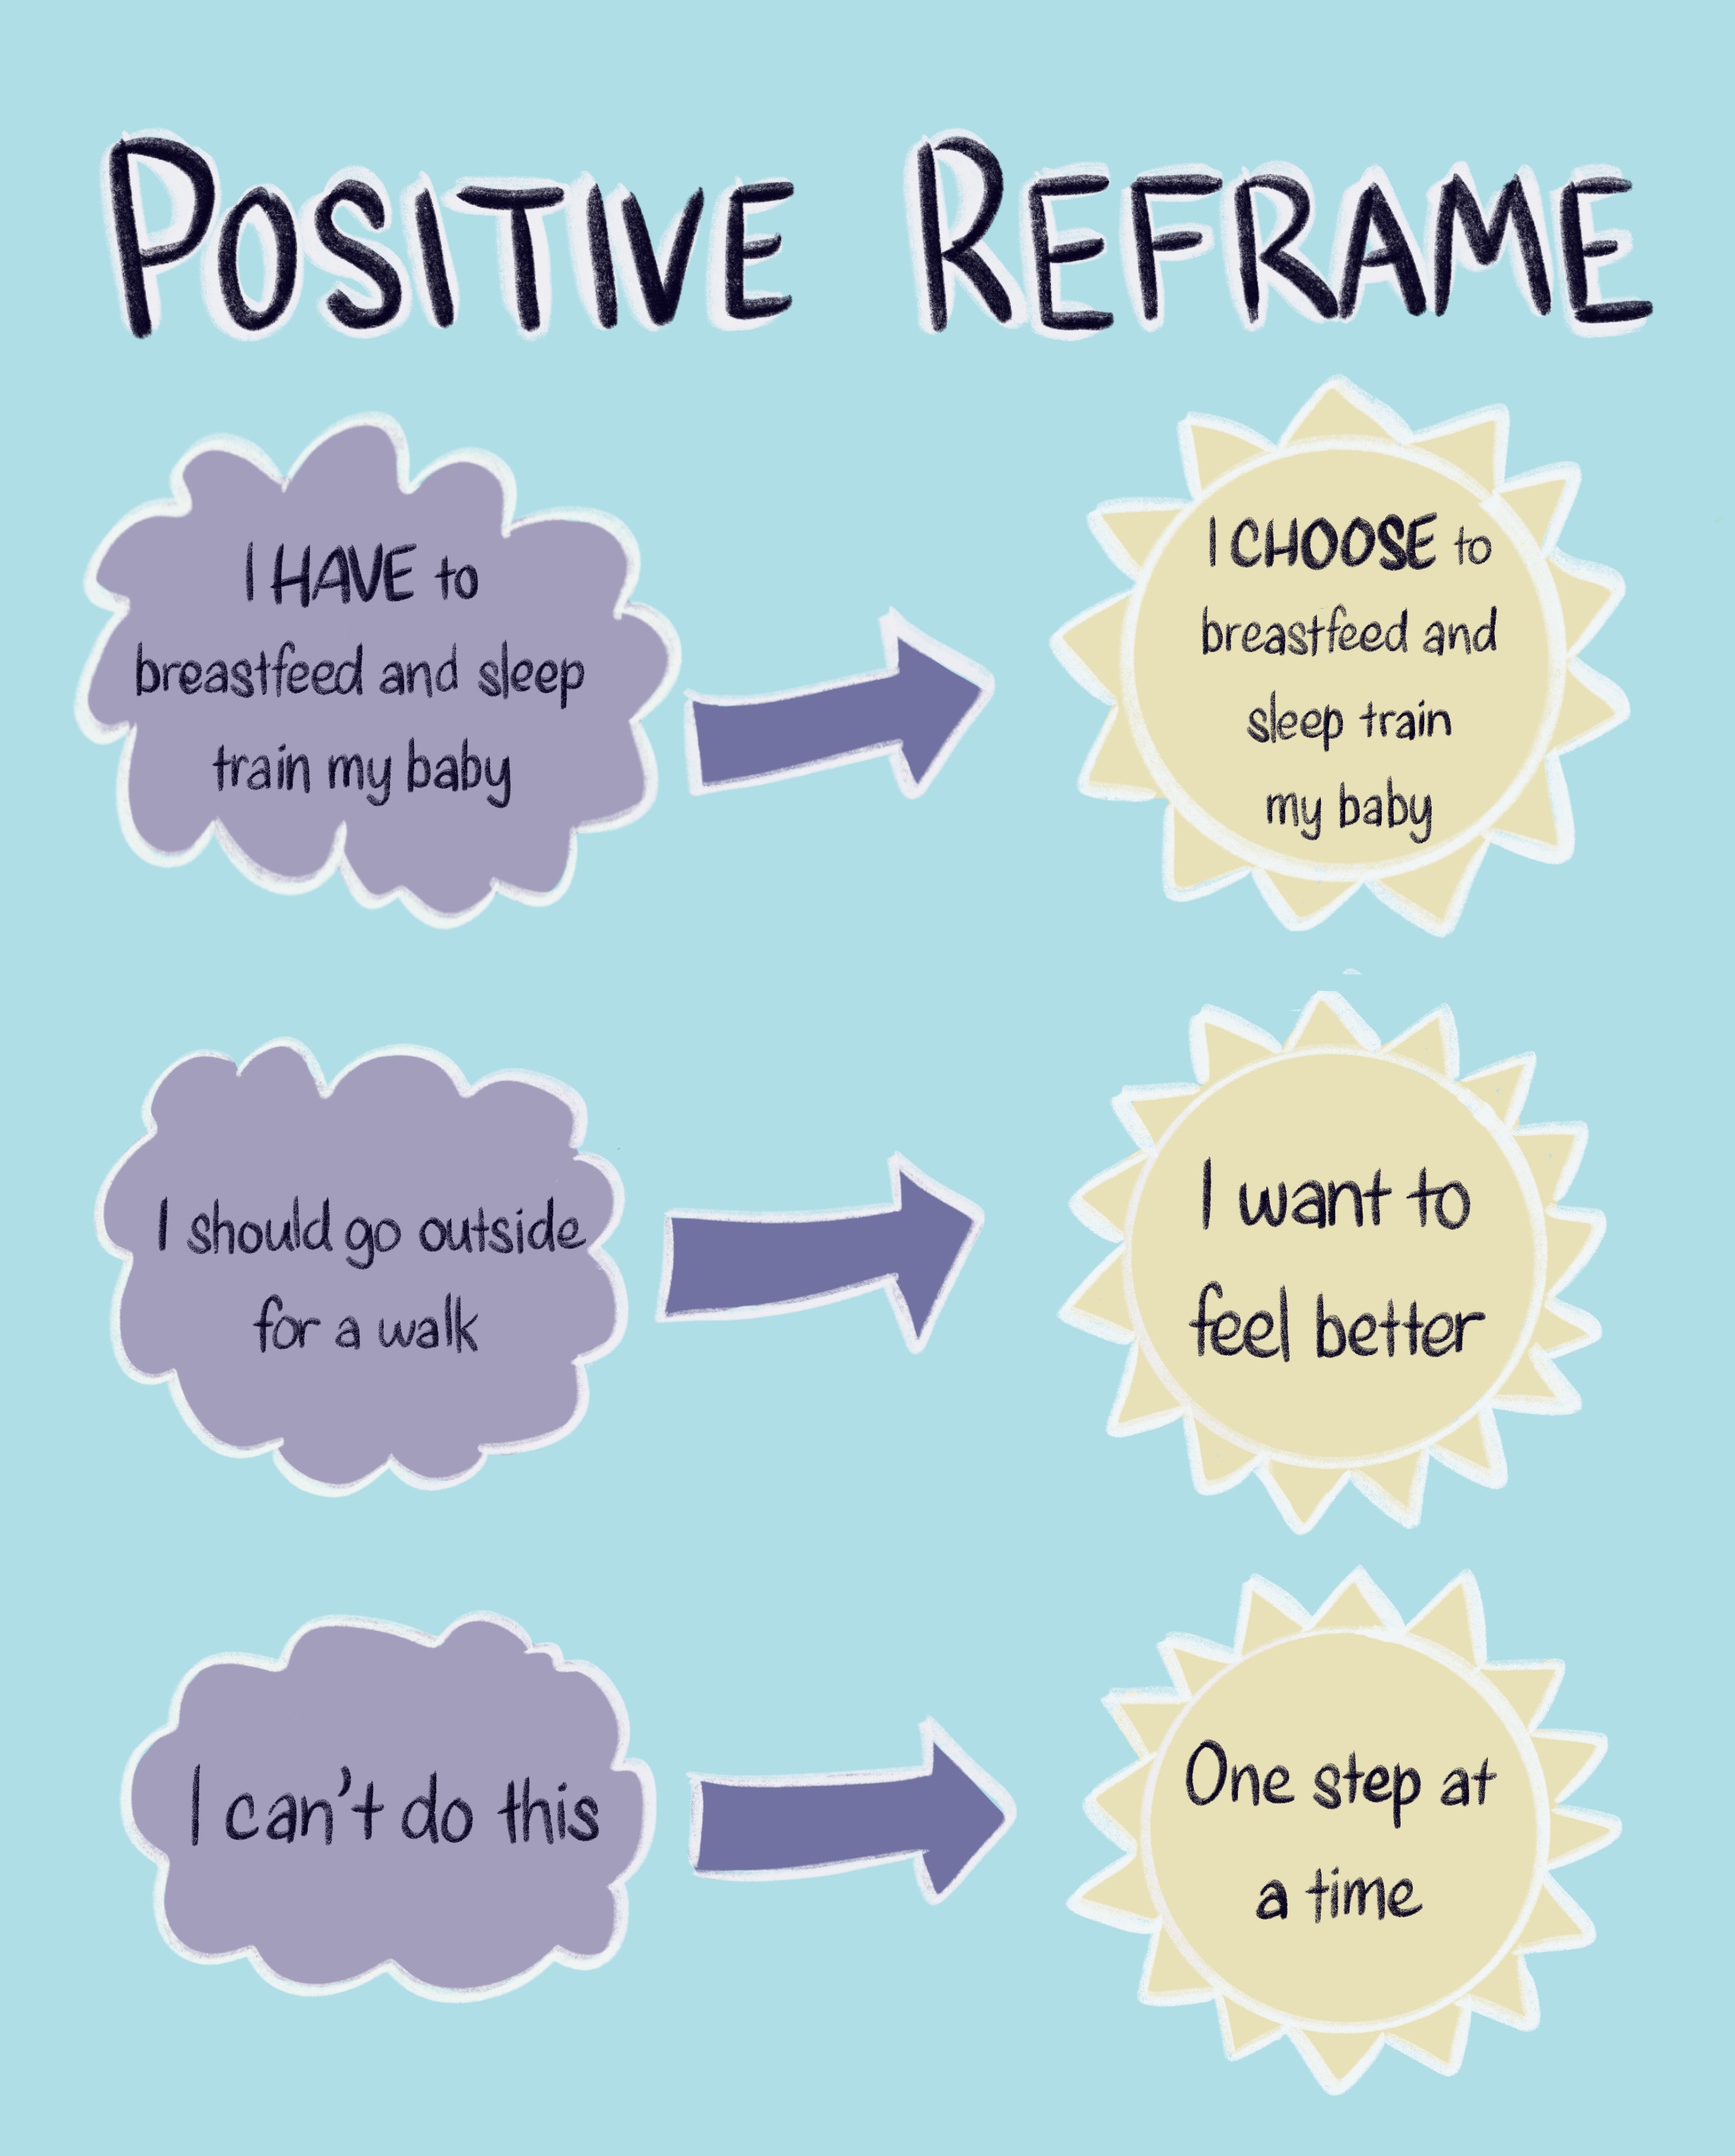 POSITIVE REFRAME
I HAVE to
breastfeed and sleep
train my baby
I CHOOSE to
breastfeed and
sleep train
my baby
I should go outside
for a walk
I want to
feel better
I can't do this
One step at
a time